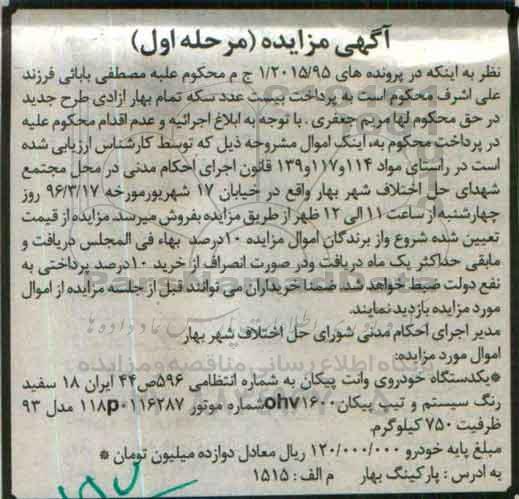 آگهی مزایده (مرحله اول)
نظر به اینکه در پرونده های ۱/۲۰۱۵/۹۵ ج م محکوم علیه مصطفی بابائی فرزند
علی اشرف محکوم است به پرداخت بیست عدد سکه تمام بهار ازادی طرح جدید
در حق محکوم لها مریم جعفری . با توجه به ابلاغ اجرائیه و عدم اقدام محکوم علیه
در پرداخت محکوم به، اینک اموال مشروحه ذیل که توسط کارشناس ارزیابی شده
است در راستای مواد ۱۱۴و۱۱۷و۱۳۹ قانون اجرای احکام مدنی در محل مجتمع
شهدای حل اختلاف شهر بهار واقع در خیابان ۱۷ شهریورمورخه ۹۶/۳/۱۷ روز
چهارشنبه از ساعت ۱۱ الی ۱۲ ظهر از طریق مزایده بفروش میرسد. مزایده از قیمت
تعیین شده شروع واز برندگان اموال مزایده ۱۰درصد بهاء فی المجلس دریافت و
مابقی حداکثر یک ماه دریافت ودر صورت انصراف از خرید ۱۰درصد پرداختی به
نفع دولت ضبط خواهد شد. ضمنا خریداران می توانند قبل از جلسه مزایده از اموال
مورد مزایده بازدید نمایند.
مدیر اجرای احکام مدنی شورای حل اختلاف شهر بهار
اموال مورد مزایده:
*یکدستگاه خودروی وانت پیکان به شماره انتظامی ۵۹۶ص۴۴ ایران ۱۸ سفید
رنگ سیستم و تیپ پیکان ohv۱۶۰۰شماره موتور ۱۱۸p۰۱۱۶۲۸۷ مدل ۹۳
ظرفیت ۷۵۰ کیلوگرم.
مبلغ پایه خودرو ۱۲۰/۰۰۰/۰۰۰ ریال معادل دوازده میلیون تومان *
به ادرس : پارکینگ بهار م الف : ۱۵۱۵